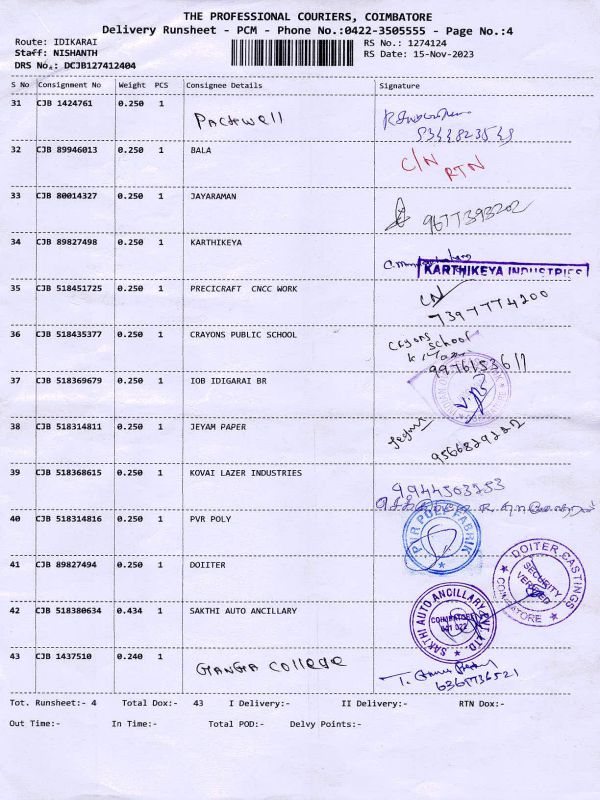 THE PROFESSIONAL COURIERS, COIMBATORE
Delivery Runsheet - PCM - Phone No.:0422-3505555 - Page No.:4
Route: IDIKARAI RS No.: 1274124
Staff: NISHANTH RS Date: 15-Nov-2023
DRS No.: DCJB127412404
S No Consignment No Weight PCS Consignee Details Signature
31 CJB 1424761 0.250 1 Packwell
32 CJB 89946013 0.250 1 BALA C/N RTN
33 CJB 80014327 0.250 1 JAYARAMAN 9677393202
34 CJB 89827498 0.250 1 KARTHIKEYA
KARTHIKEYA INDUSTRIES
35 CJB 518451725 0.250 1 PRECICRAFT CNCC WORK
7397774200
36 CJB 518435377 0.250 1 CRAYONS PUBLIC SCHOOL Crayons
School
9976153611
37 CJB 518369679 0.250 1 IOB IDIGARAI BR
38 CJB 518314811 0.250 1 JEYAM PAPER Jeyam
39 CJB 518368615 0.250 1 KOVAI LAZER INDUSTRIES
9944503753
40 CJB 518314816 0.250 1 PVR POLY PVR POLY FABRIK
41 CJB 89827494 0.250 1 DOIITER DOITER CASTINGS
SECURITY
VERIFIED
COIMBATORE
42 CJB 518380634 0.434 1 SAKTHI AUTO ANCILLARY SAKTHI AUTO ANCILLARY PVT. LTD.
COIMBATORE
641 022
43 CJB 1437510 0.240 1 GANGA College
6369736521
Tot. Runsheet:- 4 Total Dox:- 43 I Delivery:- II Delivery:- RTN Dox:-
Out Time:- In Time:- Total POD:- Delvy Points:-